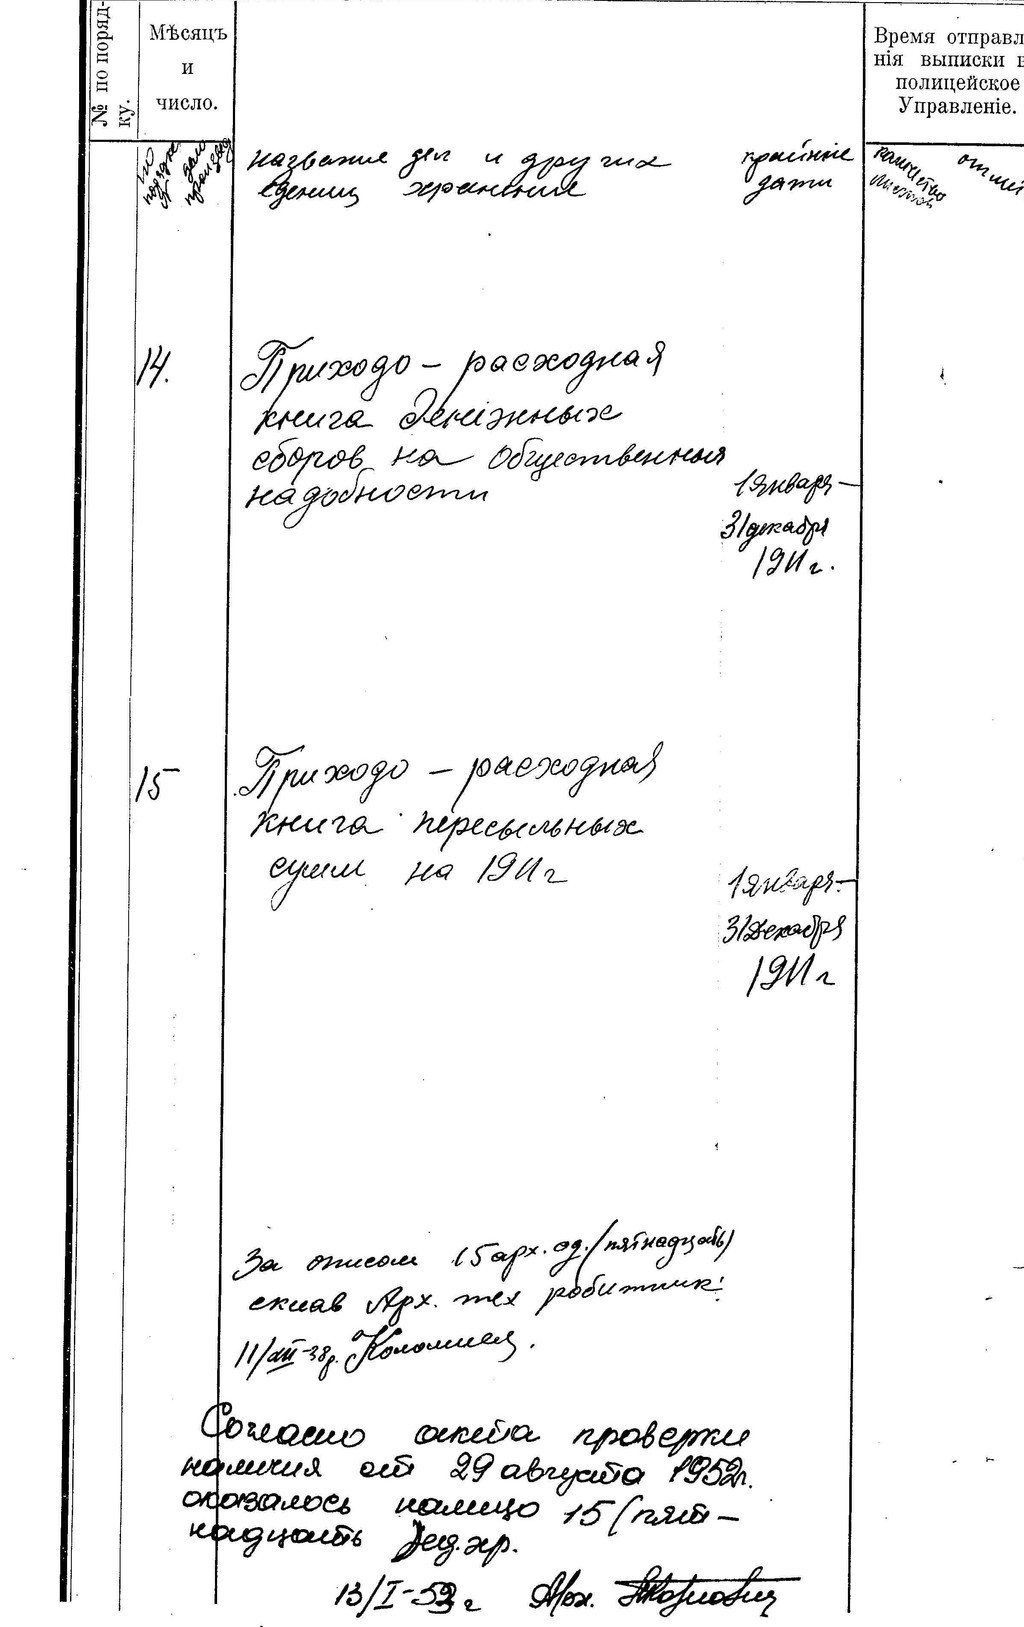 № по поряд-
ку.
Мѣсяцъ
и
число.
Время отправл
нія выписки в
полицейское
Управленіе.
по
порядку
№
дела
название дел и других
едениц хранения
крайние
даты
количество
листов
14.
Приходо – расходная
книга денежных
сборов на общественныя
надобности
1 января –
31 декабря
1911 г.
15
Приходо – расходная
книга пересыльных
сумм на 1911 г
1 января –
31 декабря
1911 г
За описом 15 арх. од. (пятнадцать)
склав Арх. тех робитник:
11/XII-38р. Коломиец.
Согласно акта проверки
наличия от 29 августа 1952г.
оказалось налицо 15 (пят–
надцать) ед. хр.
13/I-53 г